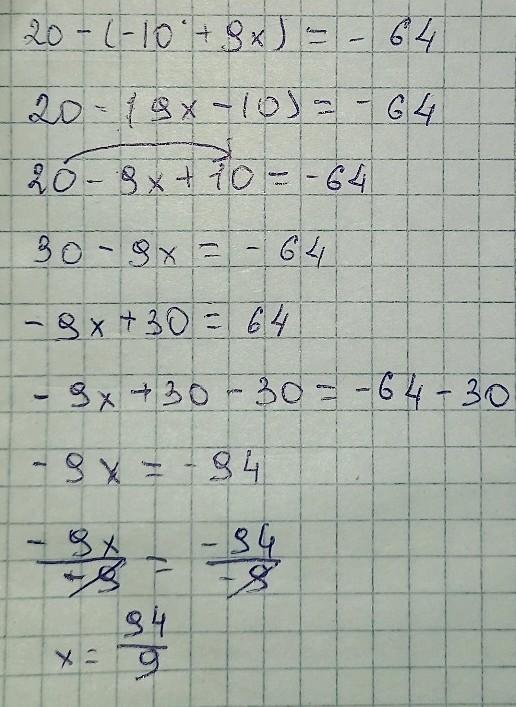 20 - (-10 + 9x) = - 64
20 - (9x - 10) = - 64
20 - 9x + 10 = -64
30 - 9x = - 64
- 9x + 30 = 64
- 9x + 30 - 30 = -64 - 30
- 9x = - 94
- 9x / - 9 = - 94 / - 9
x = 94 / 9